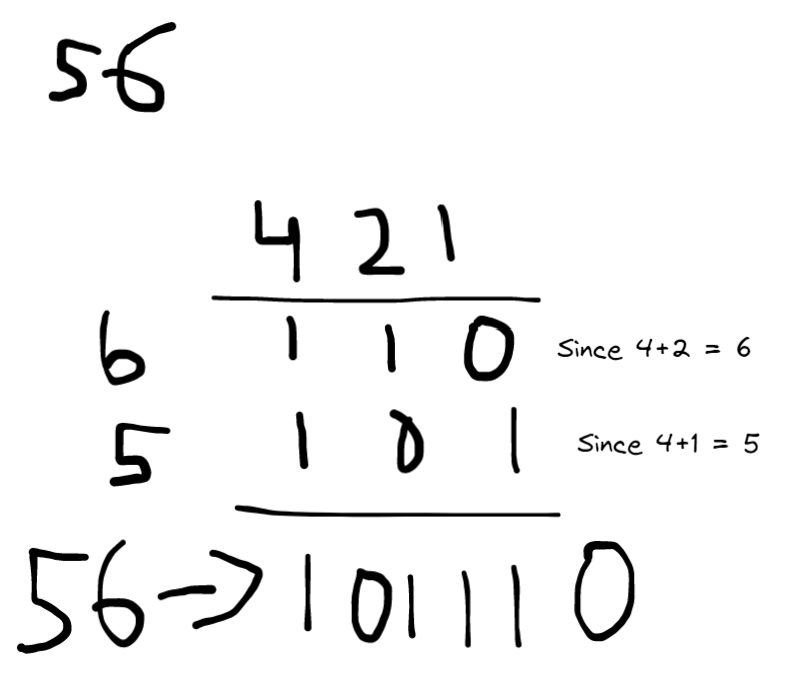 56
4 2 1
6 1 1 0 Since 4+2 = 6
5 1 0 1 Since 4+1 = 5
56 → 1 0 1 1 1 0